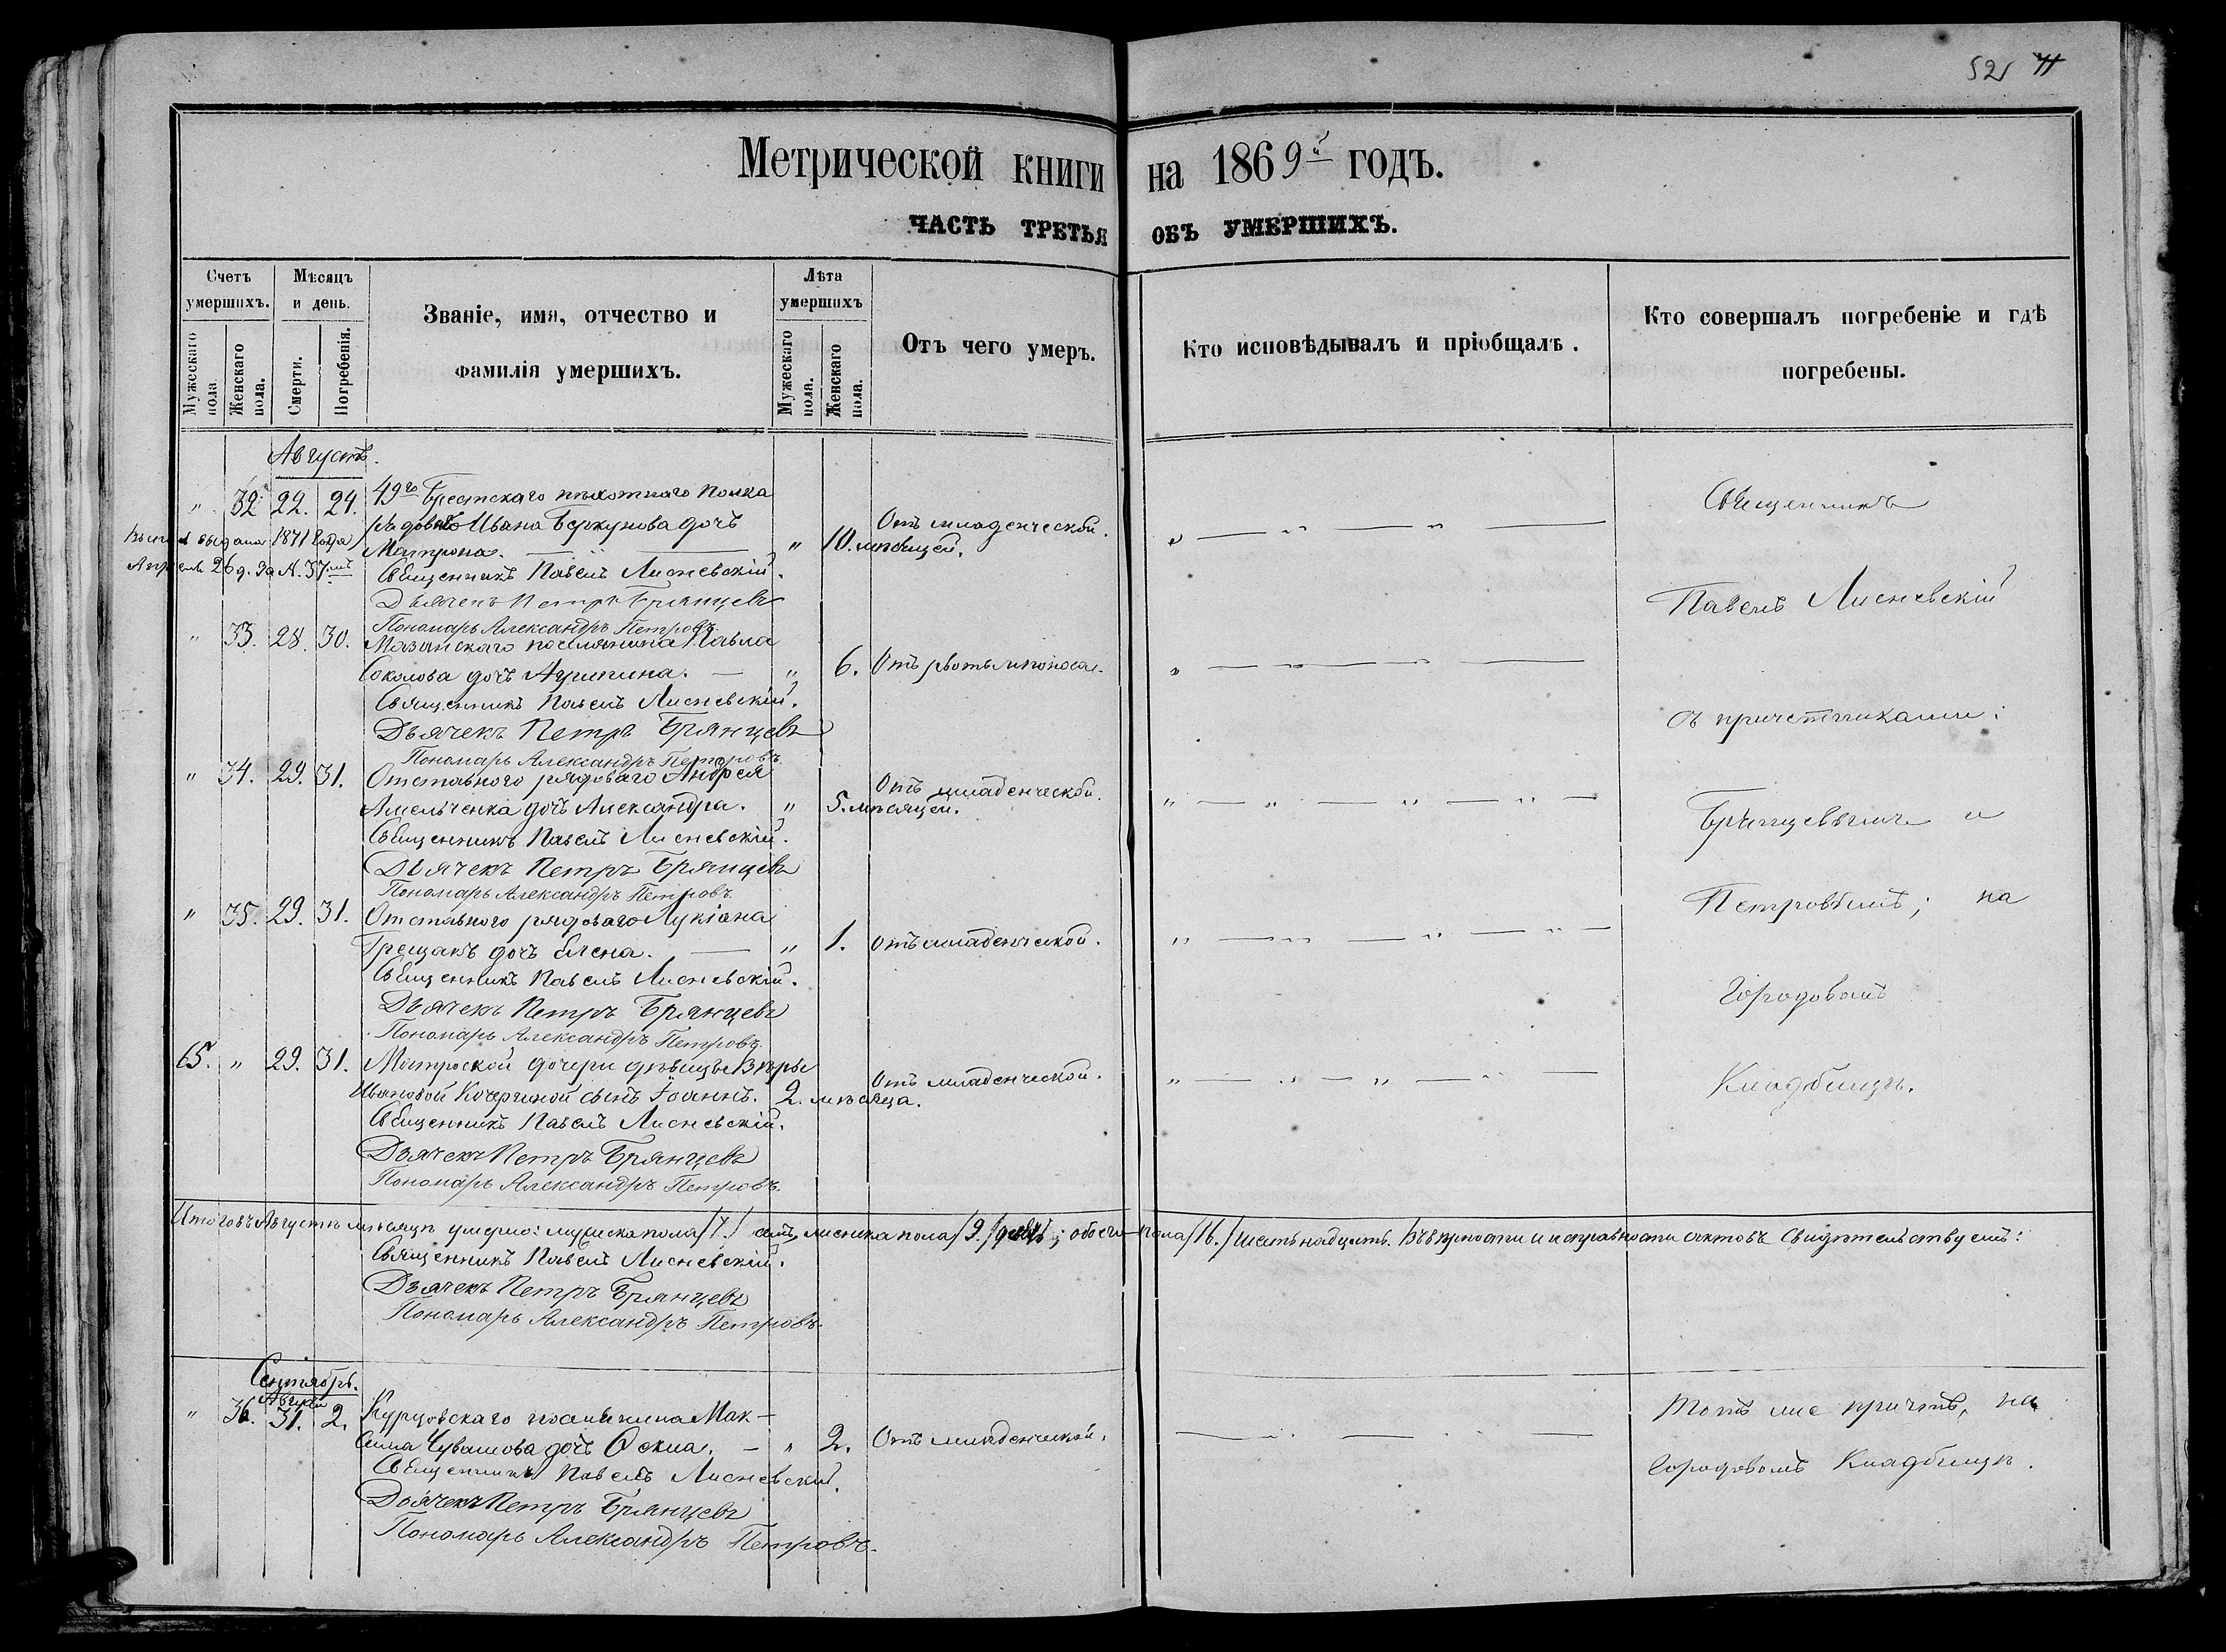 52
Метрической книги на 1869й годъ.
ЧАСТЬ ТРЕТЬЯ ОБЪ УМЕРШИХЪ.
Счетъ умершихъ.
Мужескаго пола.
Женскаго пола.
Мѣсяцъ и день.
Смерти.
Погребенія.
Званіе, имя, отчество и
фамилія умершихъ.
Лѣта умершихъ
Мужескаго пола.
Женскаго пола.
Отъ чего умеръ.
Кто исповѣдывалъ и пріобщалъ.
Кто совершалъ погребеніе и гдѣ
погребены.
Августъ.
" 32. 22. 24. 49го Брестскаго пѣхотнаго полка
рядоваго Ивана Беркунова дочь
Матрона. — " 10. мѣсяцей. Отъ младенческой.
выдана 1871 года
Апрѣля 26 д. за №. 37мъ
Священникъ Павелъ Лисневскій.
Дьячекъ Петръ Брянцевъ
Пономарь Александръ Петровъ.
" 33. 28. 30. Мазанскаго поселянина Павла
Соколова дочь Агрипина. — " 6. Отъ рвоты и поноса.
Священникъ Павелъ Лисневскій.
Дьячекъ Петръ Брянцевъ
Пономарь Александръ Петровъ.
" 34. 29. 31. Отставного рядоваго Андрея
Амельченка дочь Александра. " 5. мѣсяцей. Отъ младенческой.
Священникъ Павелъ Лисневскій.
Дьячекъ Петръ Брянцевъ
Пономарь Александръ Петровъ.
" 35. 29. 31. Отставного рядоваго Лукіана
Грещакъ дочь Елена. — " 1. Отъ младенческой.
Священникъ Павелъ Лисневскій.
Дьячекъ Петръ Брянцевъ
Пономарь Александръ Петровъ.
65. " 29. 31. Матроской дочери дѣвицы Вѣры
Ивановой Кочергиной сынъ Іоаннъ. 2. мѣсяца. Отъ младенческой.
Священникъ Павелъ Лисневскій.
Дьячекъ Петръ Брянцевъ
Пономарь Александръ Петровъ.
Священникъ
Павелъ Лисневскій
съ причетниками:
Брянцевымъ и
Петровымъ; на
Городовомъ
Кладбищѣ.
Итого въ Августѣ мѣсяцѣ умерло: мужска пола /7./ семь, женска пола /9./ девять; обоего пола /16./ шестьнадцать. Въ вѣрности и исправности актовъ свидѣтельствуемъ:
Священникъ Павелъ Лисневскій.
Дьячекъ Петръ Брянцевъ
Пономарь Александръ Петровъ.
Сентябрь.
Августа
" 36. 31. 2. Курцовскаго поселянина Мак-
сима Чувашова дочь — " 2. Отъ младенческой.
Священникъ Павелъ Лисневскій.
Дьячекъ Петръ Брянцевъ
Пономарь Александръ Петровъ.
Тотъ же причтъ, на
Городовомъ Кладбищѣ.